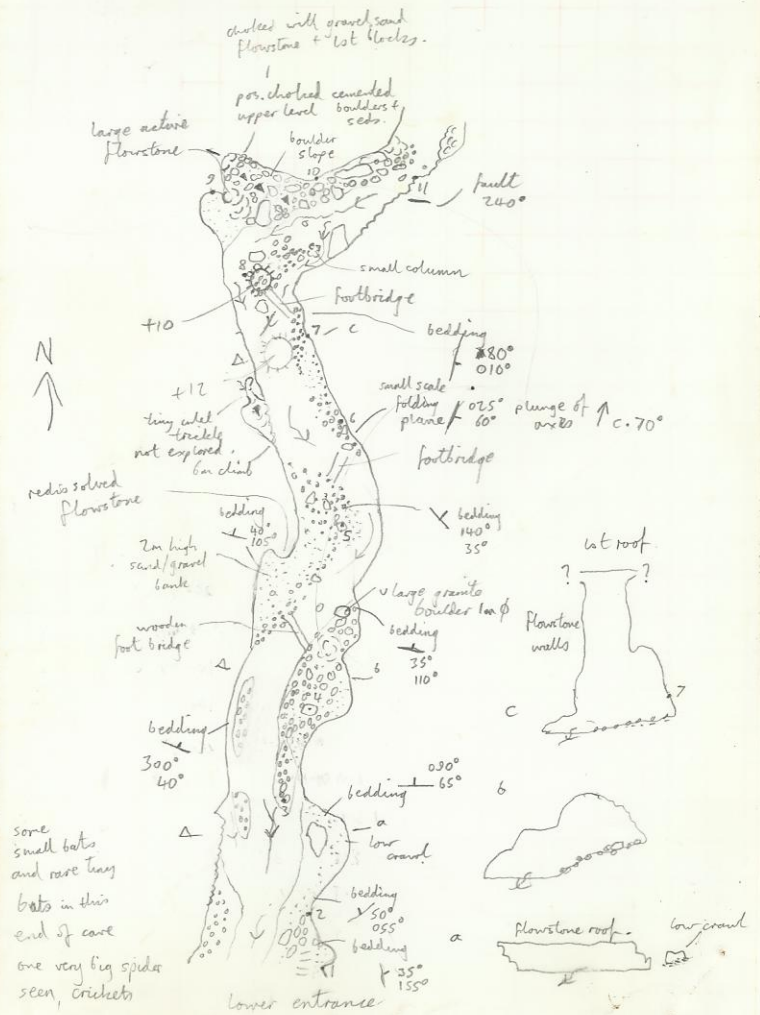 choked with gravel, sand
flowstone + lst blocks.
pos. choked cemented
upper level boulders +
seds.
large active
flowstone
boulder
slope
9
10
11
fault
240°
8
small column
footbridge
+10
7
c
bedding
80°
010°
N
+12
3
small scale
folding
plane
025°
60°
plunge of
axes
c. 70°
tiny inlet
trickle
not explored.
6m climb
6
footbridge
redissolved
flowstone
bedding
40°
105°
bedding
140°
35°
5
2m high
sand/gravel
bank
lst roof
? ?
large granite
boulder 1m ø
flowstone
walls
wooden
foot bridge
bedding
35°
110°
b
4
7
c
bedding
300°
40°
bedding
090°
65°
b
a
low
crawl
some
small bats
and rare tiny
bats in this
end of cave
one very big spider
seen, crickets
bedding
50°
055°
2
a
flowstone roof.
low crawl
bedding
35°
155°
1
lower entrance